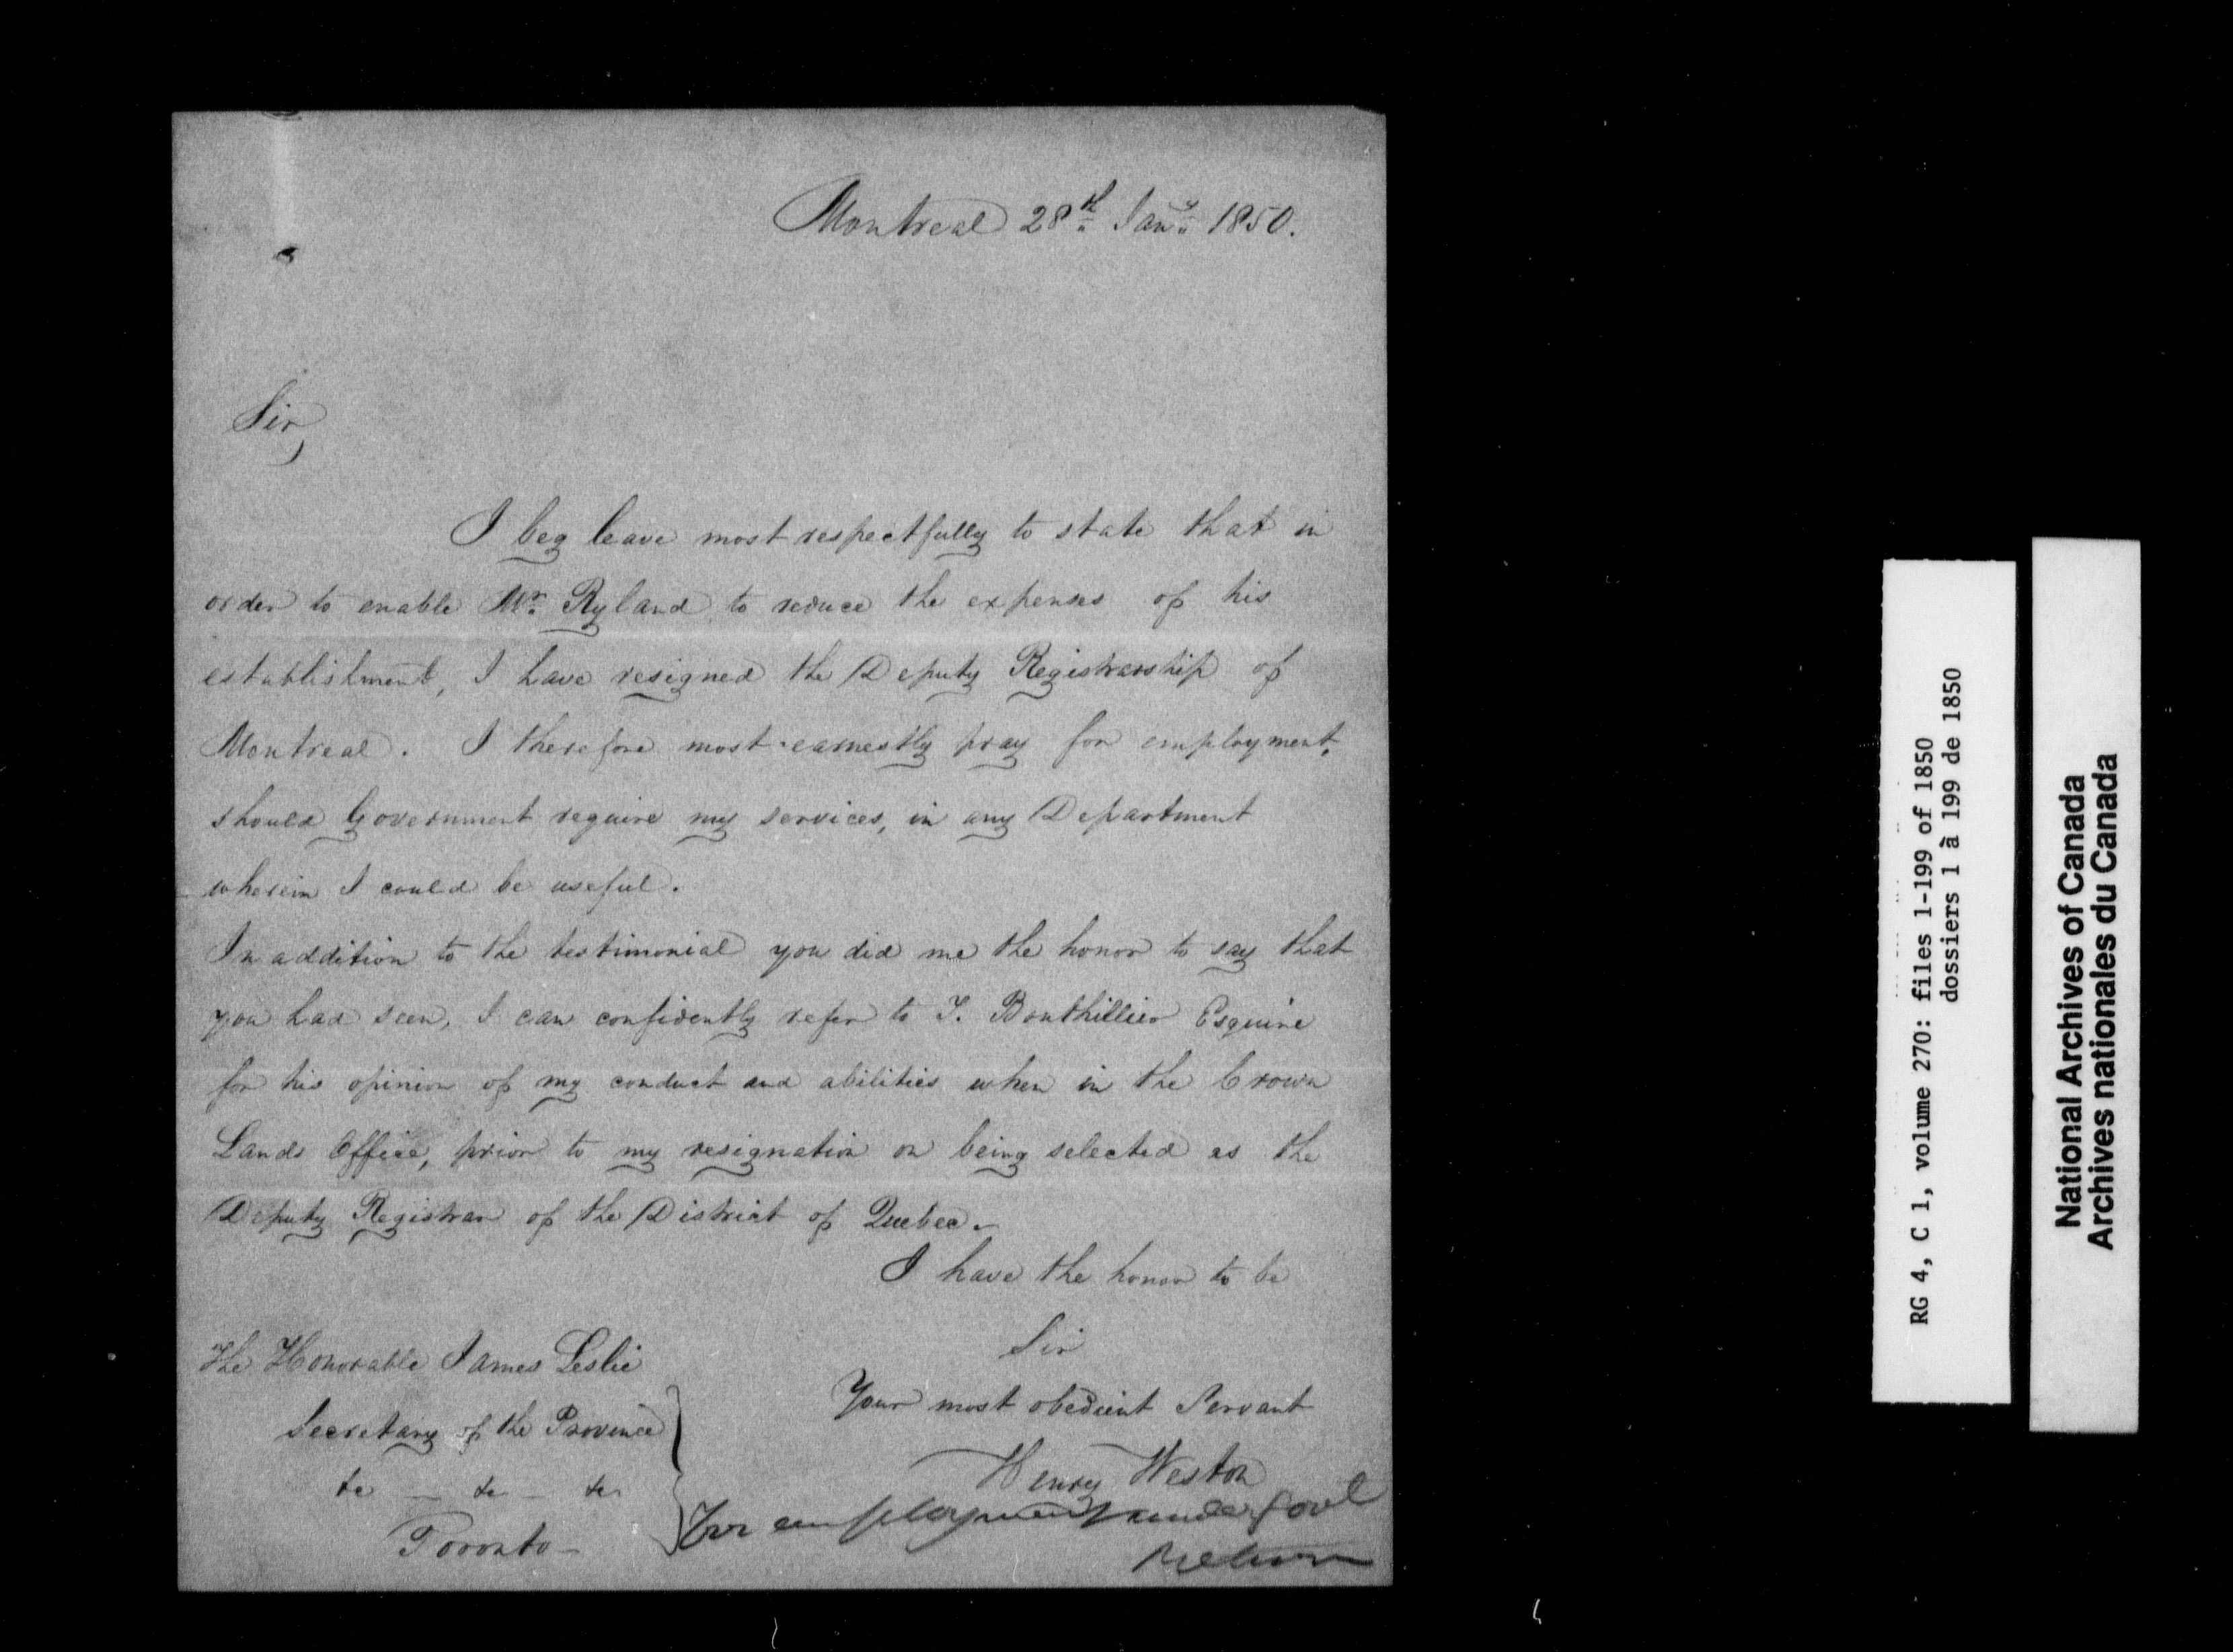 Montreal 28th Jany 1850.
Sir,
I beg leave most respectfully to state that in
order to enable Mr. Ryland to reduce the expenses of his
establishment, I have resigned the Deputy Registrarship of
Montreal. I therefore most earnestly pray for employment,
should Government require my services, in any Department
wherein I could be useful.
In addition to the testimonial you did me the honor to say that
you had seen, I can confidently refer to T. Bouthillier Esquire
for his opinion of my conduct and abilities when in the Crown
Lands Office, prior to my resignation on being selected as the
Deputy Registrar of the District of Quebec.
I have the honor to be
Sir
Your most obedient Servant
Henry Weston
The Honorable James Leslie
Secretary of the Province
&c — &c — &c
Toronto —
For employment under Govt
RG 4, C 1, volume 270: files 1-199 of 1850
dossiers 1 à 199 de 1850
National Archives of Canada
Archives nationales du Canada